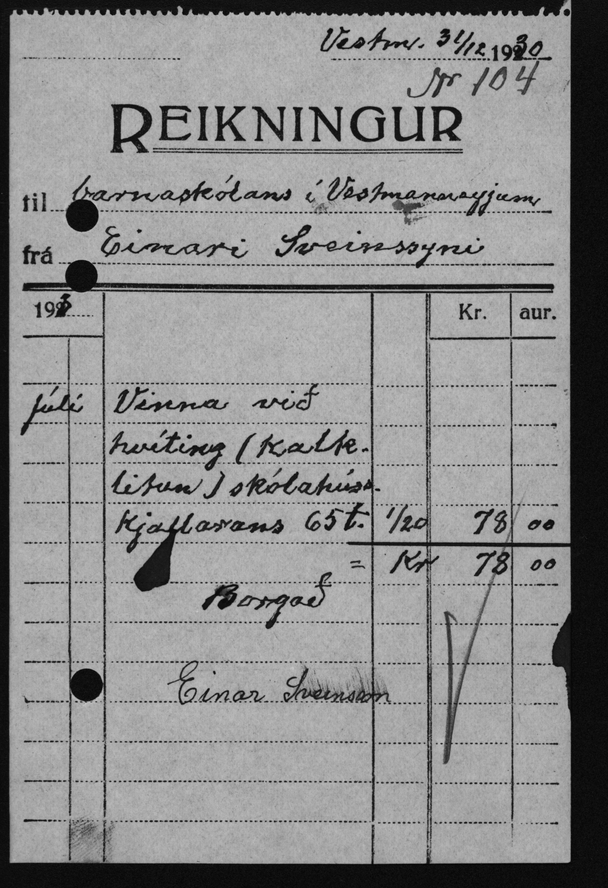 Vestm. 31/12 1930
Nr 104
REIKNINGUR
til barnaskólans í Vestmannaeyjum
frá Einari Sveinssyni
193
Kr. aur.
júlí Vinna við
hvíting (Kalk-
litun) skólahúss-
kjallarans 65 t. 1/20 78 00
= Kr 78 00
Borgað
Einar Sveinsson